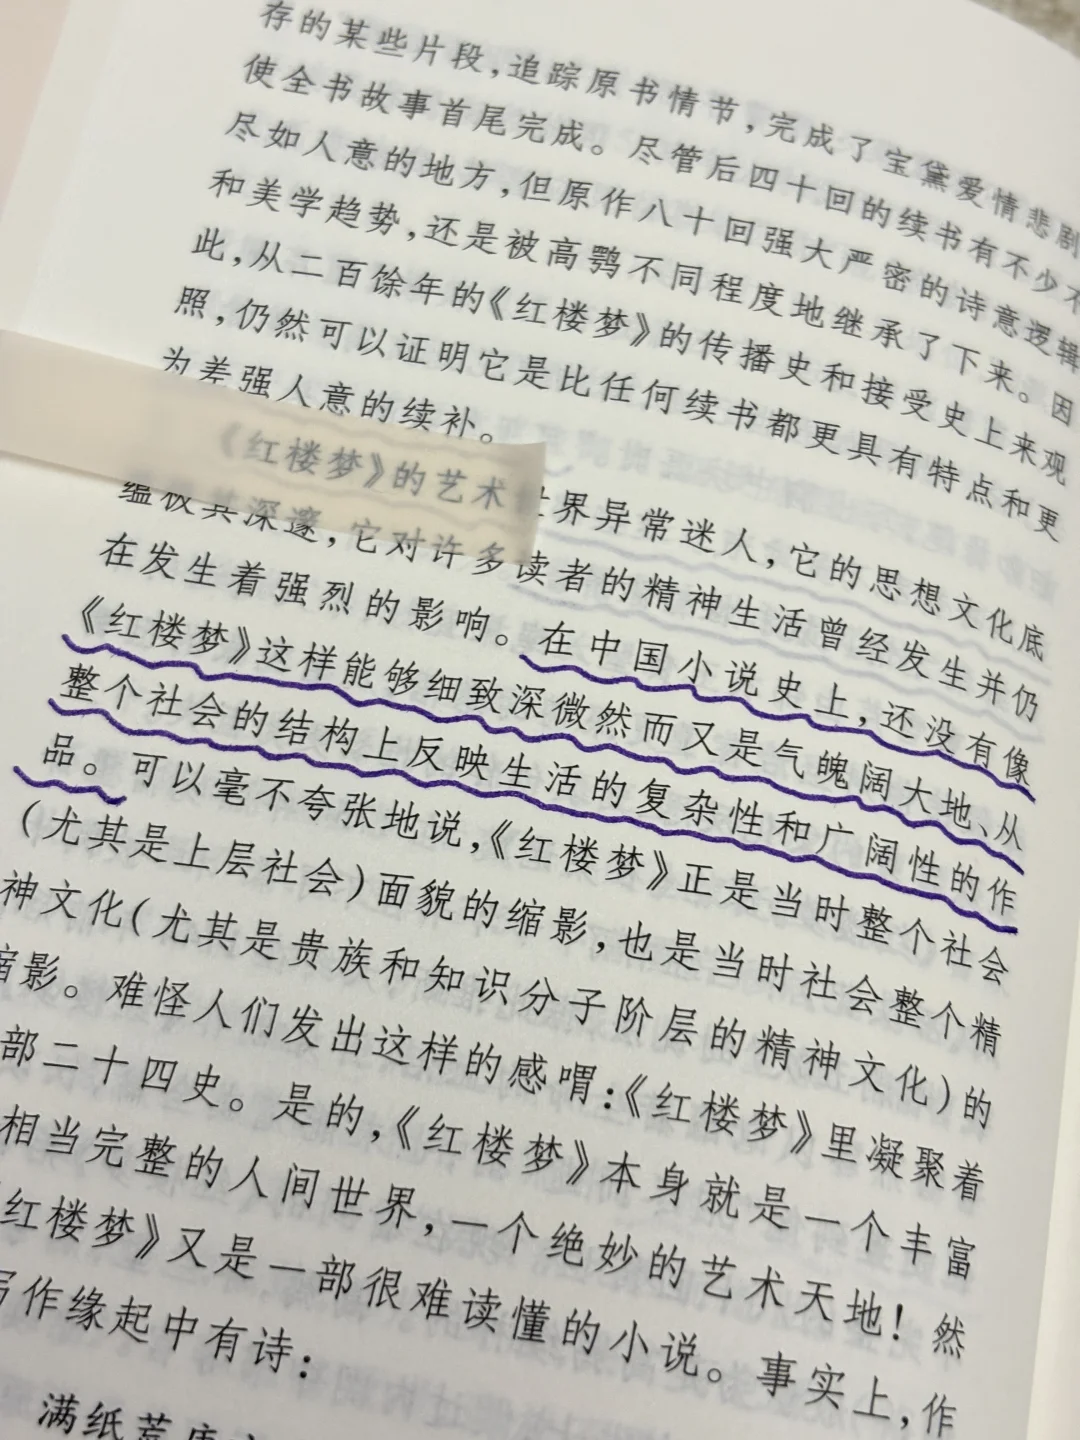 存的某些片段，追踪原书情节，完成了宝黛爱情悲剧
使全书故事首尾完成。尽管后四十回的续书有不少不
尽如人意的地方，但原作八十回强大严密的诗意逻辑
和美学趋势，还是被高鹗不同程度地继承了下来。因
此，从二百馀年的《红楼梦》的传播史和接受史上来观
照，仍然可以证明它是比任何续书都更具有特点和更
为差强人意的续补。
《红楼梦》的艺术世界异常迷人，它的思想文化底
蕴极其深邃，它对许多读者的精神生活曾经发生并仍
在发生着强烈的影响。在中国小说史上，还没有像
《红楼梦》这样能够细致深微然而又是气魄阔大地、从
整个社会的结构上反映生活的复杂性和广阔性的作
品。可以毫不夸张地说，《红楼梦》正是当时整个社会
（尤其是上层社会）面貌的缩影，也是当时社会整个精
神文化（尤其是贵族和知识分子阶层的精神文化）的
缩影。难怪人们发出这样的感喟：《红楼梦》里凝聚着
部二十四史。是的，《红楼梦》本身就是一个丰富
相当完整的人间世界，一个绝妙的艺术天地！然
《红楼梦》又是一部很难读懂的小说。事实上，作
写作缘起中有诗：
满纸荒唐